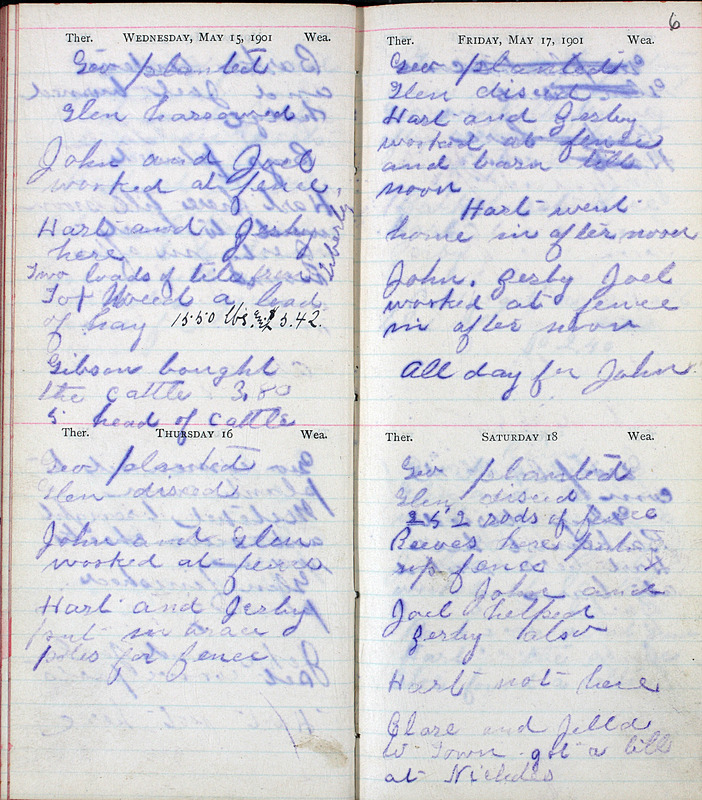 Ther. WEDNESDAY, MAY 15, 1901 Wea.
Geo planted
Glen harrowed
John and Joel
worked at fence
Hart and Gerby
here
Two loads of tile from Liberty
Fox Weed a load
of hay 1550 lbs. $5.42.
Gibson bought
the cattle 3,80
5 head of cattle
Ther. THURSDAY 16 Wea.
Geo planted
Glen disced
John and Glen
worked at fence
Hart and Gerby
put in brace
poles for fence
6
Ther. FRIDAY, MAY 17, 1901 Wea.
Geo planted
Glen disced
Hart and Gerby
worked at fence
and barn till
noon
Hart went
home in after noon
John, Gerby Joel
worked at fence
in after noon
All day for John
Ther. SATURDAY 18 Wea.
Geo planted
Glen disced
rods of fence
Reeves here put
up fence
John and
Joel helped
Gerby also
Hart not here
Clare and
to Town got a bill
at Nichols